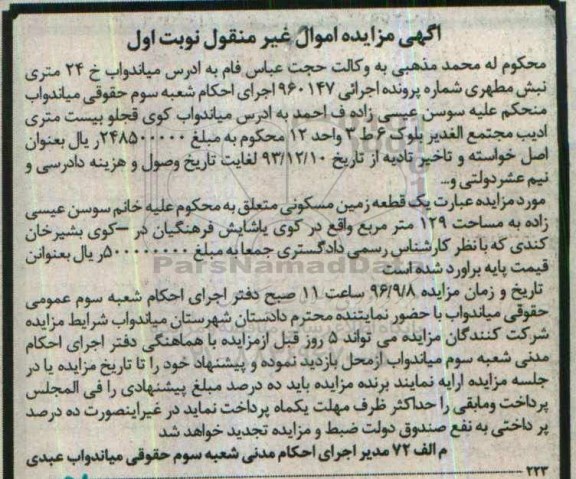 آگهی مزایده اموال غیر منقول نوبت اول
محکوم له محمد مذهبی به وکالت حجت عباس فام به ادرس میاندواب خ ۲۴ متری
نبش مطهری شماره پرونده اجرائی ۹۶۰۱۴۷ اجرای احکام شعبه سوم حقوقی میاندواب
منحکم علیه سوسن عیسی زاده ف احمد به ادرس میاندواب کوی قجلو بیست متری
ادیب مجتمع الغدیر بلوک ۶ ط ۳ واحد ۱۲ محکوم به مبلغ ۲۴۸۵۰۰۰۰۰ر یال بعنوان
اصل خواسته و تاخیر تادیه از تاریخ ۹۳/۱۲/۱۰ لغایت تاریخ وصول و هزینه دادرسی و
نیم عشر دولتی و...
مورد مزایده عبارت یک قطعه زمین مسکونی متعلق به محکوم علیه خانم سوسن عیسی
زاده به مساحت ۱۲۹ متر مربع واقع در کوی یاشایش فرهنگیان در –کوی بشیرخان
کندی که با نظر کارشناس رسمی دادگستری جمعا به مبلغ ۵۰۰۰۰۰۰۰۰ر یال بعنوانن
قیمت پایه براورد شده است
تاریخ و زمان مزایده ۹۶/۹/۸ ساعت ۱۱ صبح دفتر اجرای احکام شعبه سوم عمومی
حقوقی میاندواب با حضور نماینده محترم دادستان شهرستان میاندواب شرایط مزایده
شرکت کنندگان مزایده می تواند ۵ روز قبل ازمزایده با هماهنگی دفتر اجرای احکام
مدنی شعبه سوم میاندواب ازمحل بازدید نموده و پیشنهاد خود را تا تاریخ مزایده یا در
جلسه مزایده ارایه نمایند برنده مزایده باید ده درصد مبلغ پیشنهادی را فی المجلس
پرداخت ومابقی را حداکثر ظرف مهلت یکماه پرداخت نماید در غیراینصورت ده درصد
پر داختی به نفع صندوق دولت ضبط و مزایده تجدید خواهد شد
م الف ۷۲ مدیر اجرای احکام مدنی شعبه سوم حقوقی میاندواب عبدی
۲۲۳
ParsNamadData